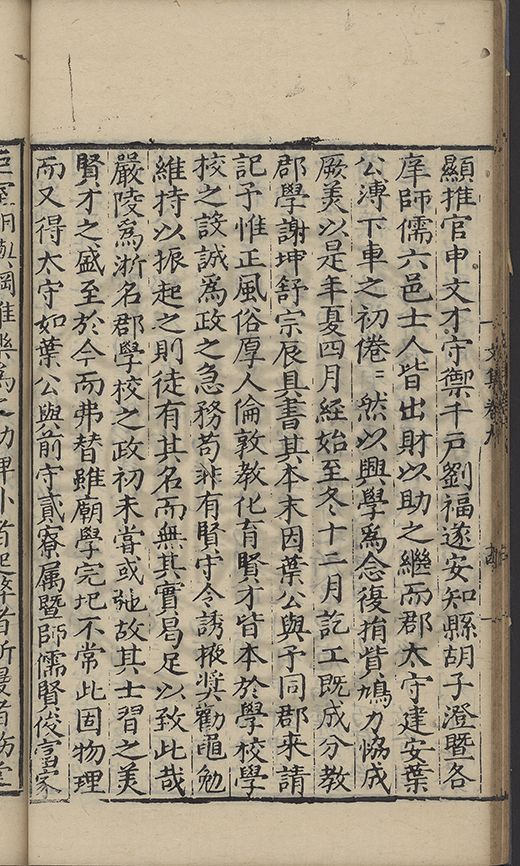 顯推官申文才守禦千戸劉福遂安知縣胡子澄暨各
庠師儒六邑士人皆出財以助之繼而郡太守建安葉
公溥下車之初倦〻然以興學爲念復捐貲鳩力恊成
厥美以是年夏四月經始至冬十二月訖工既成分教
郡學謝坤舒宗辰具書其本末因葉公與予同郡來請
記予惟正風俗厚人倫敦教化育賢才皆本於學校學
校之設誠爲政之急務苟非有賢守令誘掖奬勸黽勉
維持以振起之則徒有其名而無其實曷足以致此哉
嚴陵爲浙名郡學校之政初未嘗或弛故其士習之美
賢才之盛至於今而弗替雖廟學完圮不常此固物理
而又得太守如葉公與前守貳寮属暨師儒賢俊富家
文集卷九